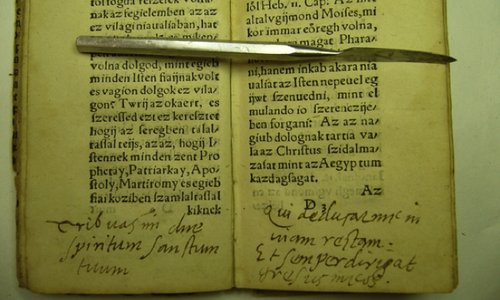 az fegielemben az az
ez vilagi niaualsában, hat
volna dolgod, mint egieb
minden Isten fiainak volt
es vagion dolgok ez vila-
gon: Twrij az okaert, es
szeressed ezt ez keresztet
hogij az seregben talal-
tassal teijs, az az, hogij I-
stennek minden zent Pro-
phetaij, Patriarkaij, Apo-
stolij, Martiromij es egieb
fiai koziben szamlaltassal
kiknek
spiritum sanctum
tuum
lól Heb. n. Cap. Az mi
altal vgij mond Moises, mi
kor immar eóregh volna,
magat Phara
ni, hanem inkab akara nia
ualsat az Isten nepeuel eg
ijwt szenuedni, mint el
mulando io szerenczije-
ben forgani: Az az na-
giub dolognak tartia va-
la az Christus szidalma-
zasat mint az Aegyptum
kazdagsagat.
D 3
Az
Et semper dirigat